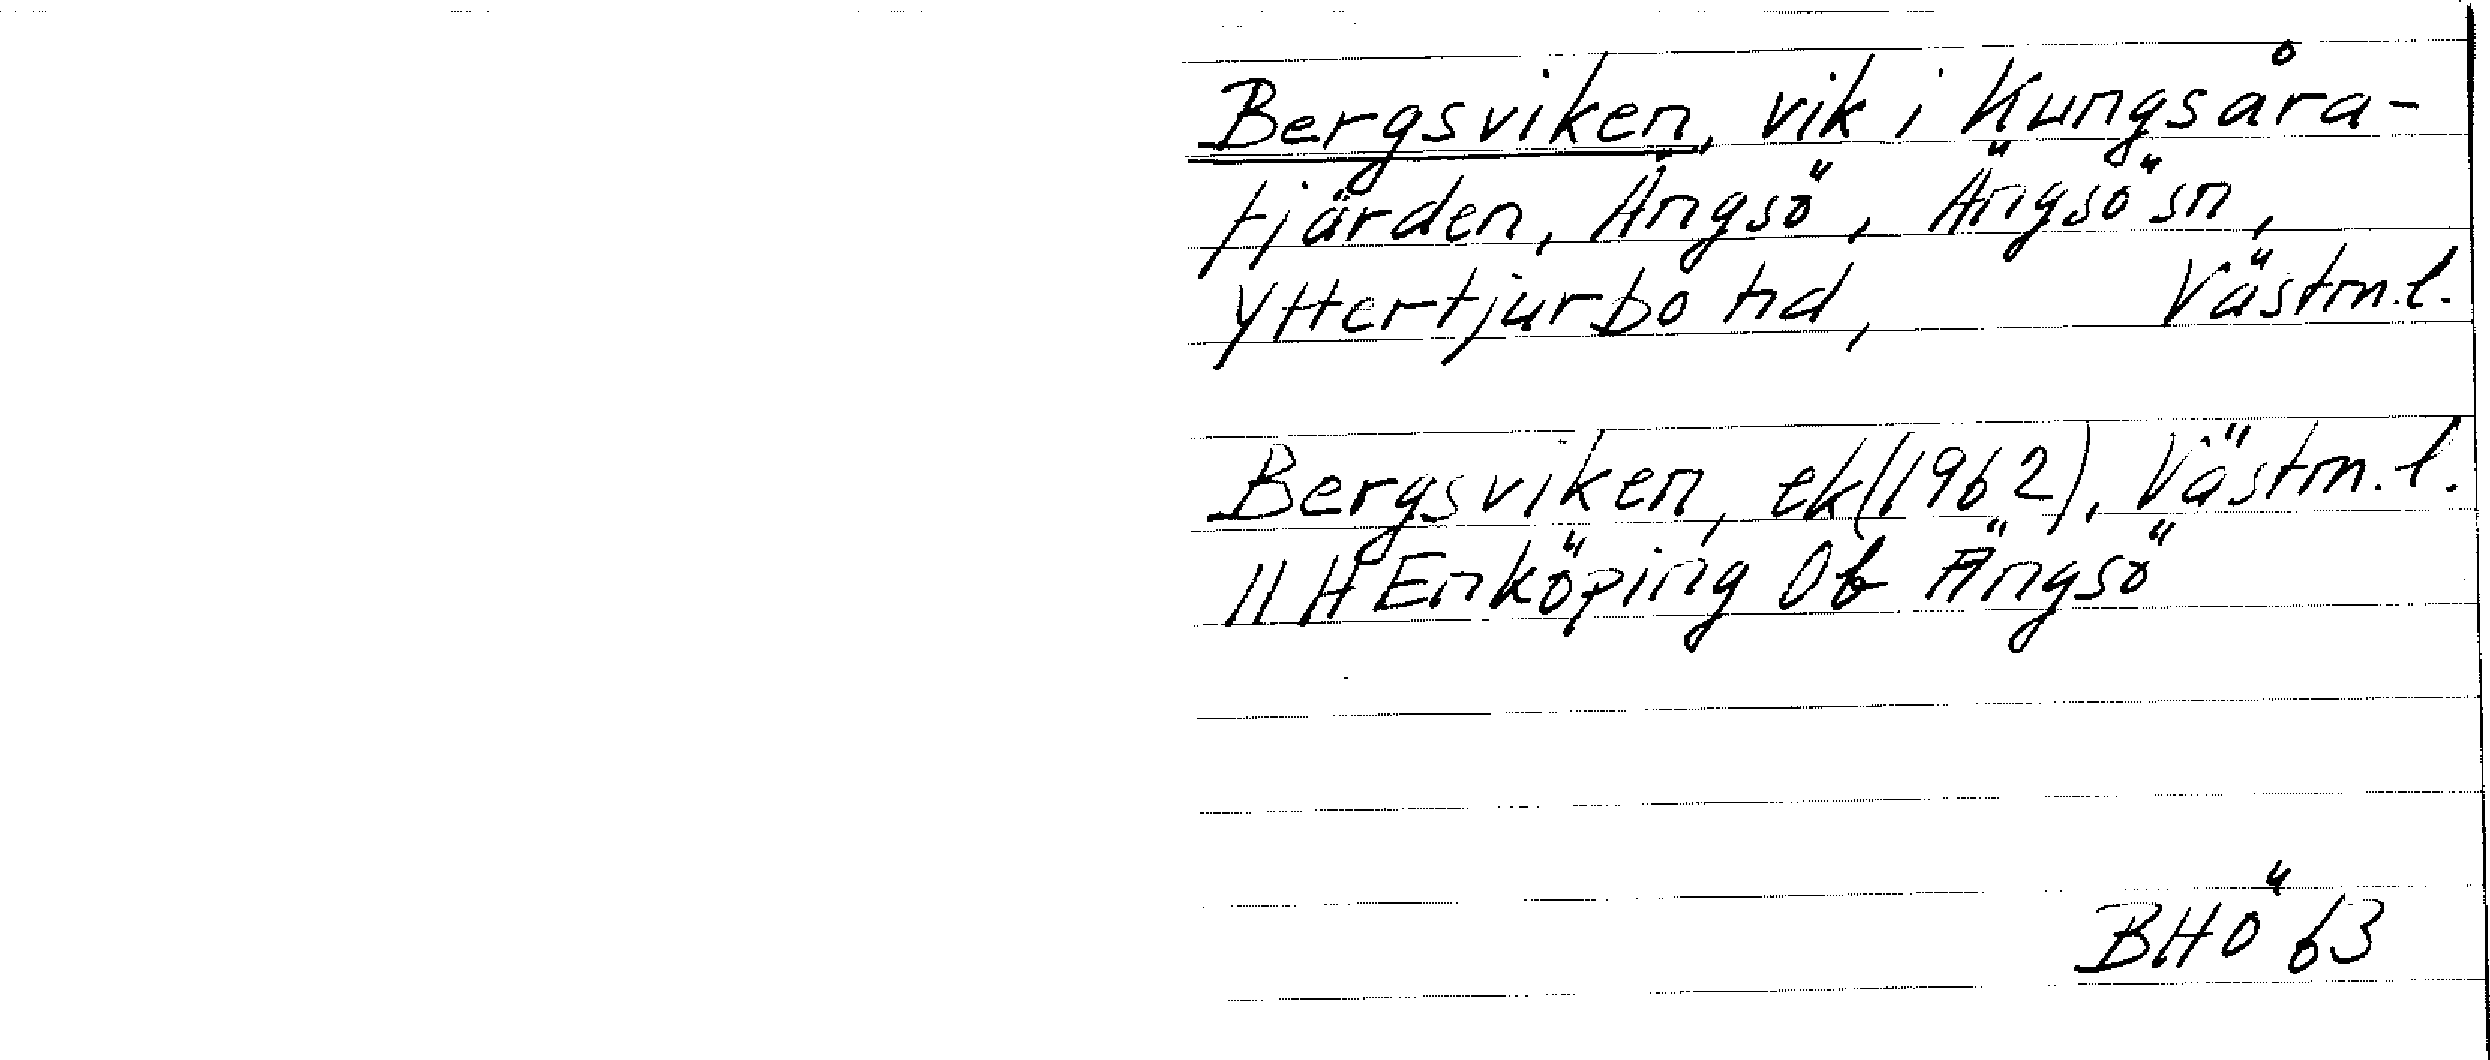 Bergsviken, vik i Kungsåra-
fjärden, Ängsö, Ängsö sn,
Yttertjurbo hd, Västm.l.
Bergsviken, ek (1962), Västm.l.
11 H Enköping 0b Ängsö
BHÖ 63